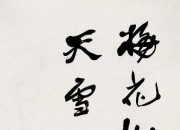 梅花
天雪